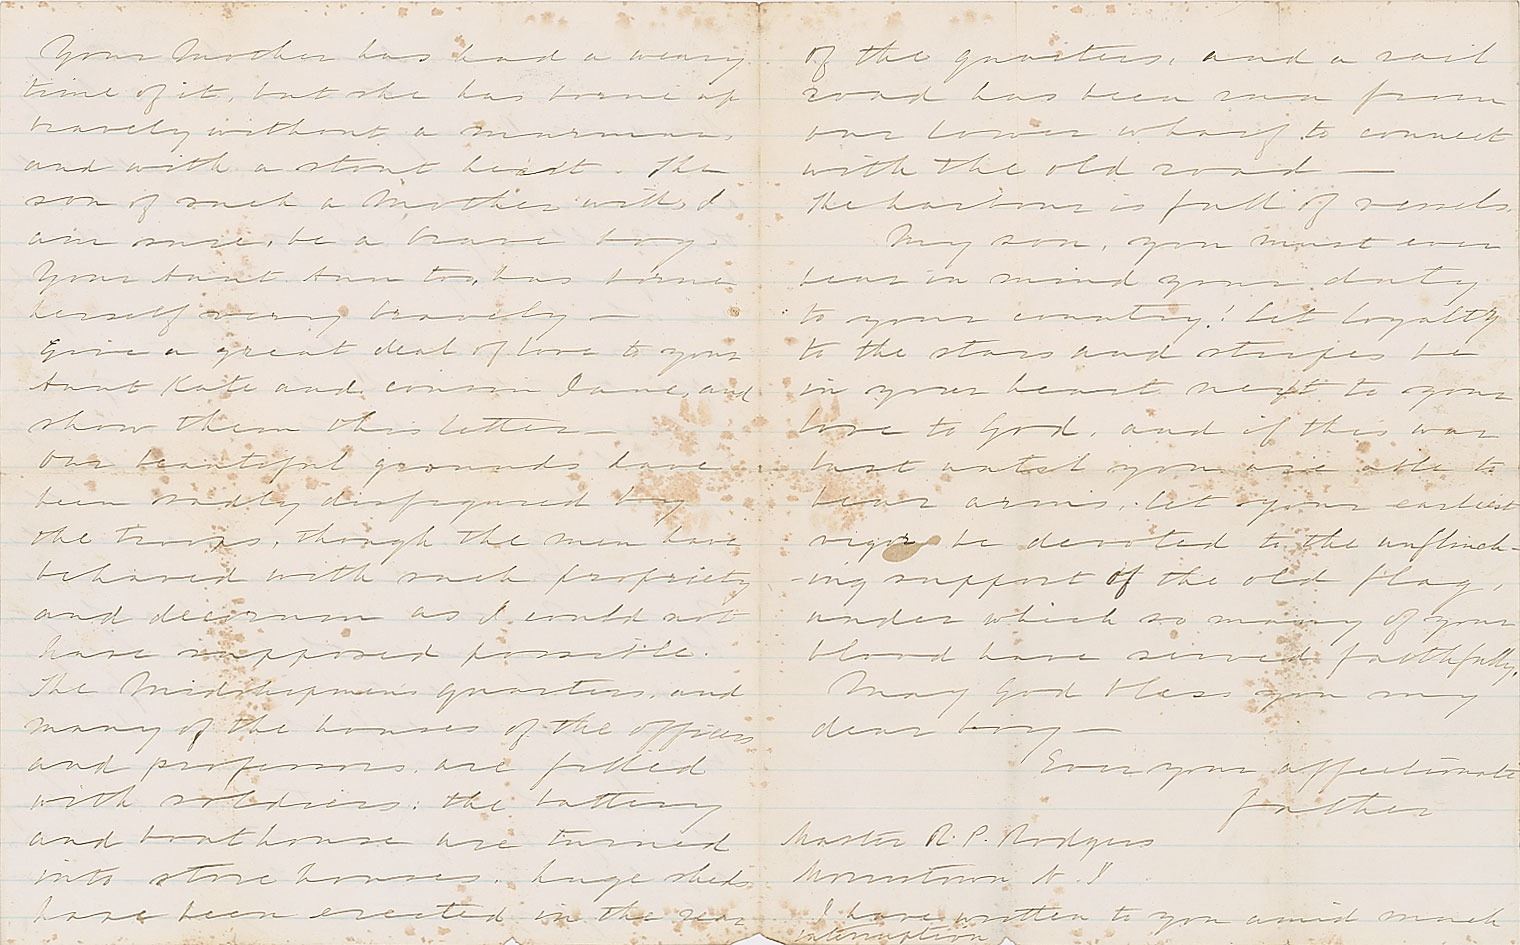 Your Mother has had a weary
time of it, but she has borne up
bravely without a murmur
and with a stout heart. The
son of such a Mother will, I
am sure, be a brave boy.
Your Aunt Ann too, has borne
herself very bravely —
Give a great deal of love to your
Aunt Kate and cousin Jane, and
show them this letter —
Our beautiful grounds have
been sadly disfigured by
the troops, though the men have
behaved with such propriety
and decorum as I could not
have supposed possible.
The Midshipmen's quarters, and
many of the houses of the officers
and professors, are filled
with soldiers: the battery
and boat house are turned
into store houses. huge sheds
have been erected in the rear
of the quarters, and a rail
road has been run from
our lower wharf to connect
with the old road —
The harbour is full of vessels.
My son, you must ever
bear in mind your duty
to your country! Let loyalty
to the stars and stripes be
in your heart next to your
love to God, and if this war
last until you are able to
bear arms, let your earliest
vigor be devoted to the unflinch-
-ing support of the old flag,
under which so many of your
blood have served faithfully.
May God bless you my
dear boy —
Ever your affectionate
father
Master R. P. Rodgers
Morristown N. J
I have written to you amid much
interruption